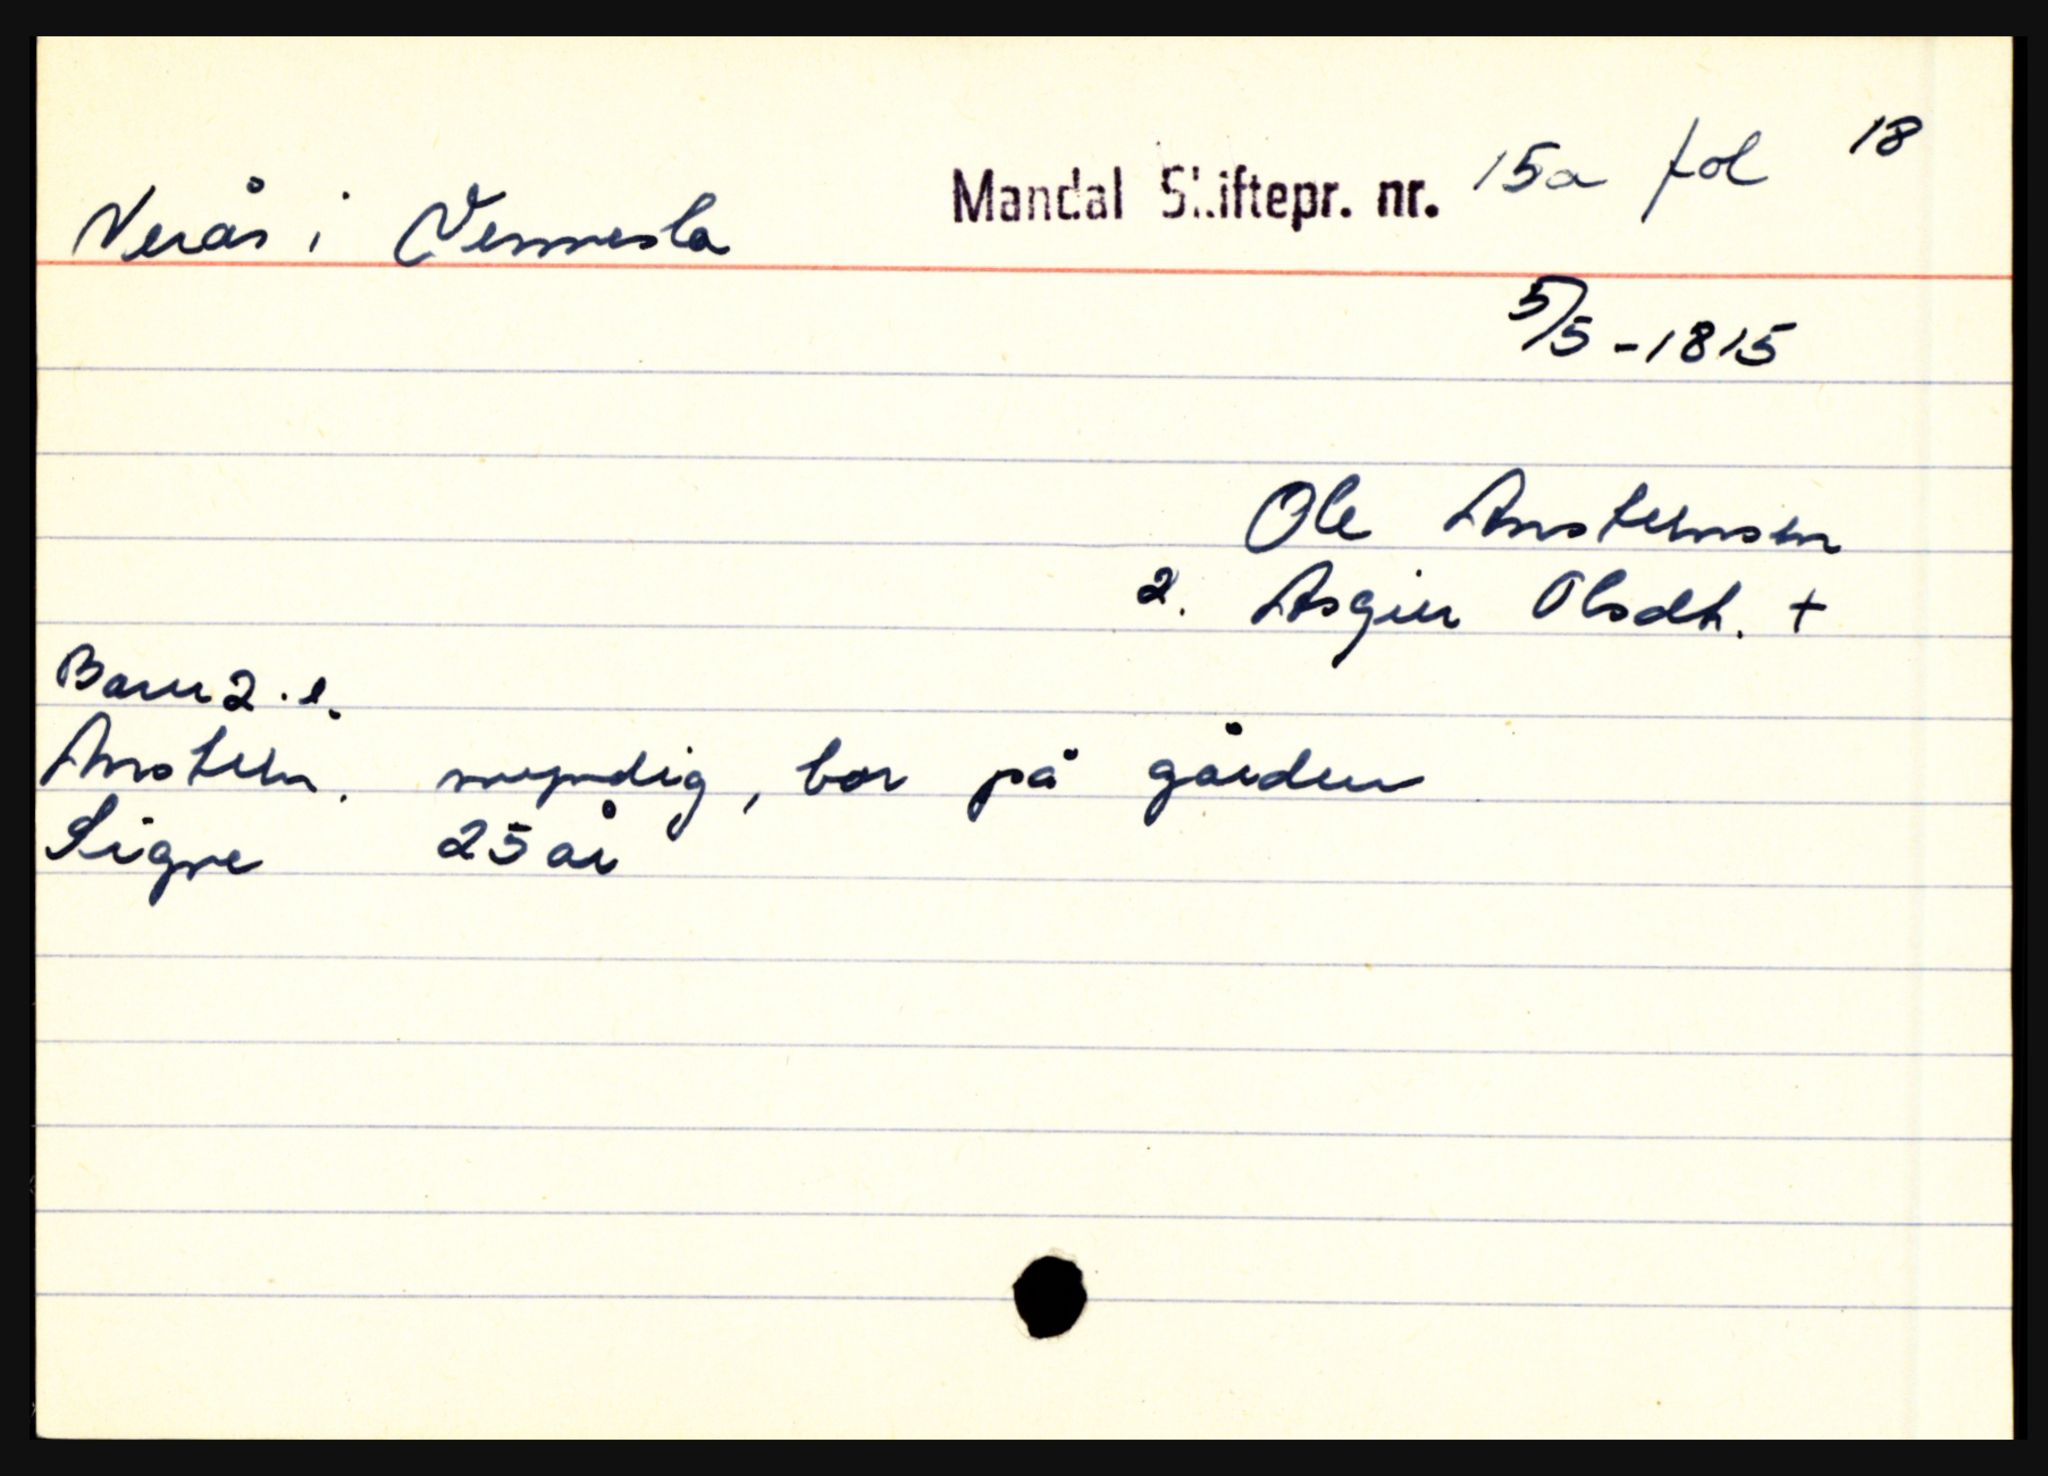 Verås i Vennesla Mandal Skiftepr. nr. 15a fol 18
5/5 - 1815
Ole Ansteinsen
2. Asgier Olsdt. +
Barn 2. e.
Anstein. myndig, bor på gården
Signe 25 år